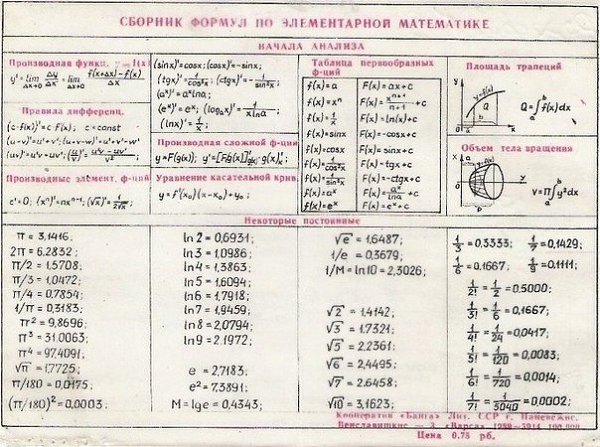 СБОРНИК ФОРМУЛ ПО ЭЛЕМЕНТАРНОЙ МАТЕМАТИКЕ
НАЧАЛА АНАЛИЗА
Производная функц. y=f(x)
y'=lim Δy/Δx = lim f(x+Δx)-f(x)/Δx
Δx→0 Δx→0
Правила дифференц.
(c·f(x))'=c F'(x); c=const
(u-v)'=u'+v'; (u-v-w)'=u'+v'-w'
(uv)'=u'v+uv'; (u/v)'=u'v-uv'/v²;
Производные элемент. ф-ций
c'=0; (xⁿ)'=nxⁿ⁻¹; (√x)'=1/2√x;
(sinx)'=cosx; (cosx)'=-sinx;
(tgx)'=1/cos²x; (ctgx)'=-1/sin²x;
(aˣ)'=aˣlna;
(eˣ)'=eˣ; (logₐx)'=1/xlna;
(lnx)'=1/x;
Производная сложной ф-ции
y=F(g(x)); y'=[F(g(x))]'g(x)·g(x)';
Уравнение касательной крив.
y=f'(x₀)(x-x₀)+y₀;
Таблица первообразных
ф-ций
f(x)=a F(x)=ax+c
f(x)=xⁿ F(x)=xⁿ⁺¹/n+1+c
f(x)=1/x F(x)=ln(x)+c
f(x)=sinx F(x)=-cosx+c
f(x)=cosx F(x)=sinx+c
f(x)=1/cos²x F(x)=tgx+c
f(x)=1/sin²x F(x)=-ctgx+c
f(x)=aˣ F(x)=aˣ/lna+c
f(x)=eˣ F(x)=eˣ+c
Площадь трапеций
y
y=f(x)
Q
a b x
Q=∫f(x)dx
Объем тела вращения
V=π∫y²dx
Некоторые постоянные
π = 3,1416;
2π = 6,2832;
π/2 = 1,5708;
π/3 = 1,0472;
π/4 = 0,7854;
1/π = 0,3183;
π² = 9,8696;
π³ = 31,0063;
π⁴ = 97,4091;
√π = 1,7725;
π/180 = 0,0175;
(π/180)² = 0,0003;
ln 2 = 0,6931;
ln 3 = 1,0986;
ln 4 = 1,3863;
ln 5 = 1,6094;
ln 6 = 1,7918;
ln 7 = 1,9459;
ln 8 = 2,0794;
ln 9 = 2,1972;
e = 2,7183;
e² = 7,3891;
M = lg e = 0,4343;
√e = 1,6487;
1/e = 0,3679;
1/M = ln10 = 2,3026;
√2 = 1,4142;
√3 = 1,7321;
√5 = 2,2361;
√6 = 2,4495;
√7 = 2,6458;
√10 = 3,1623;
1/3 = 0,3333; 1/7 = 0,1429;
1/6 = 0,1667; 1/9 = 0,1111;
1/2! = 1/2 = 0,5000;
1/3! = 1/6 = 0,1667;
1/4! = 1/24 = 0,0417;
1/5! = 1/120 = 0,0083;
1/6! = 1/720 = 0,0014;
1/7! = 1/5040 = 0,0002;
Кооператив «Банга» Лит. ССР г. Паневежис.
«Варса» 100 000
Цена 0.75 рб.